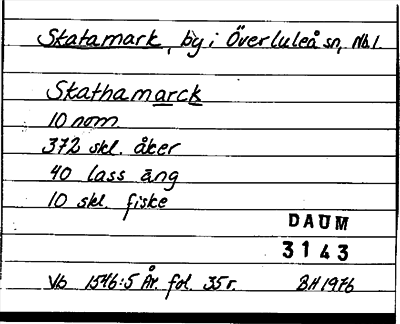 Skatamark, by i Överluleå sn, Nb l.
Skathamarck
10 nom.
372 skl. åker
40 lass äng
10 skl. fiske
DAUM
3143
Vb 1546:5 År. fol. 35 r. BH 1976